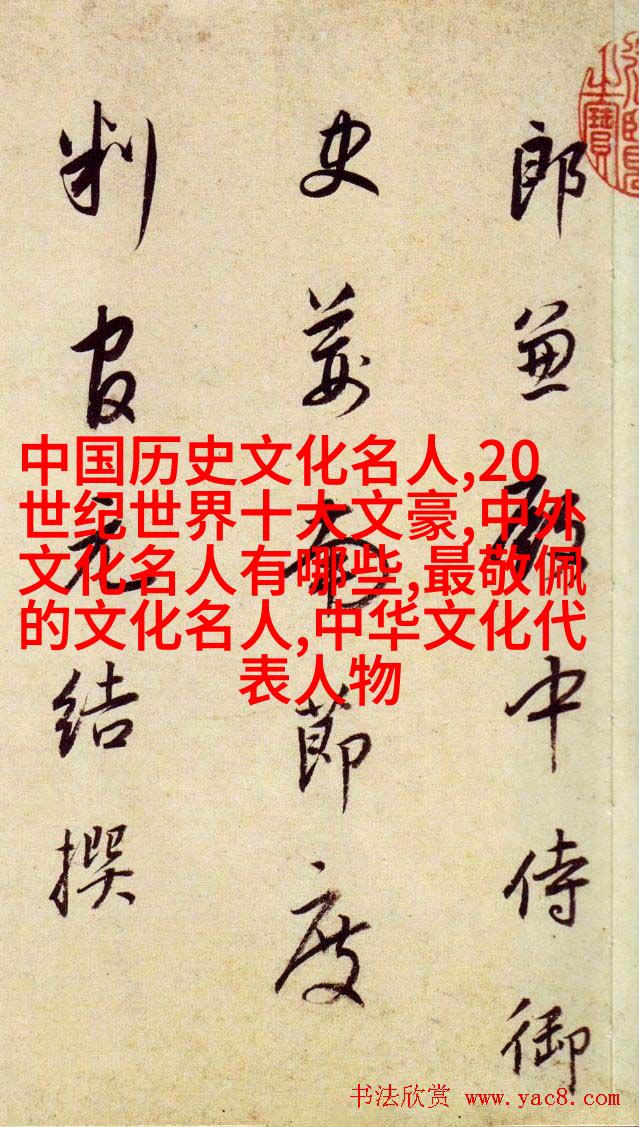 郎兼殿中侍御
史荊南節度
判官元結撰
中国历史文化名人,20
世纪世界十大文豪,中外
文化名人有哪些,最敬佩
的文化名人,中华文化代
表人物
书法欣赏 www.yac8.com